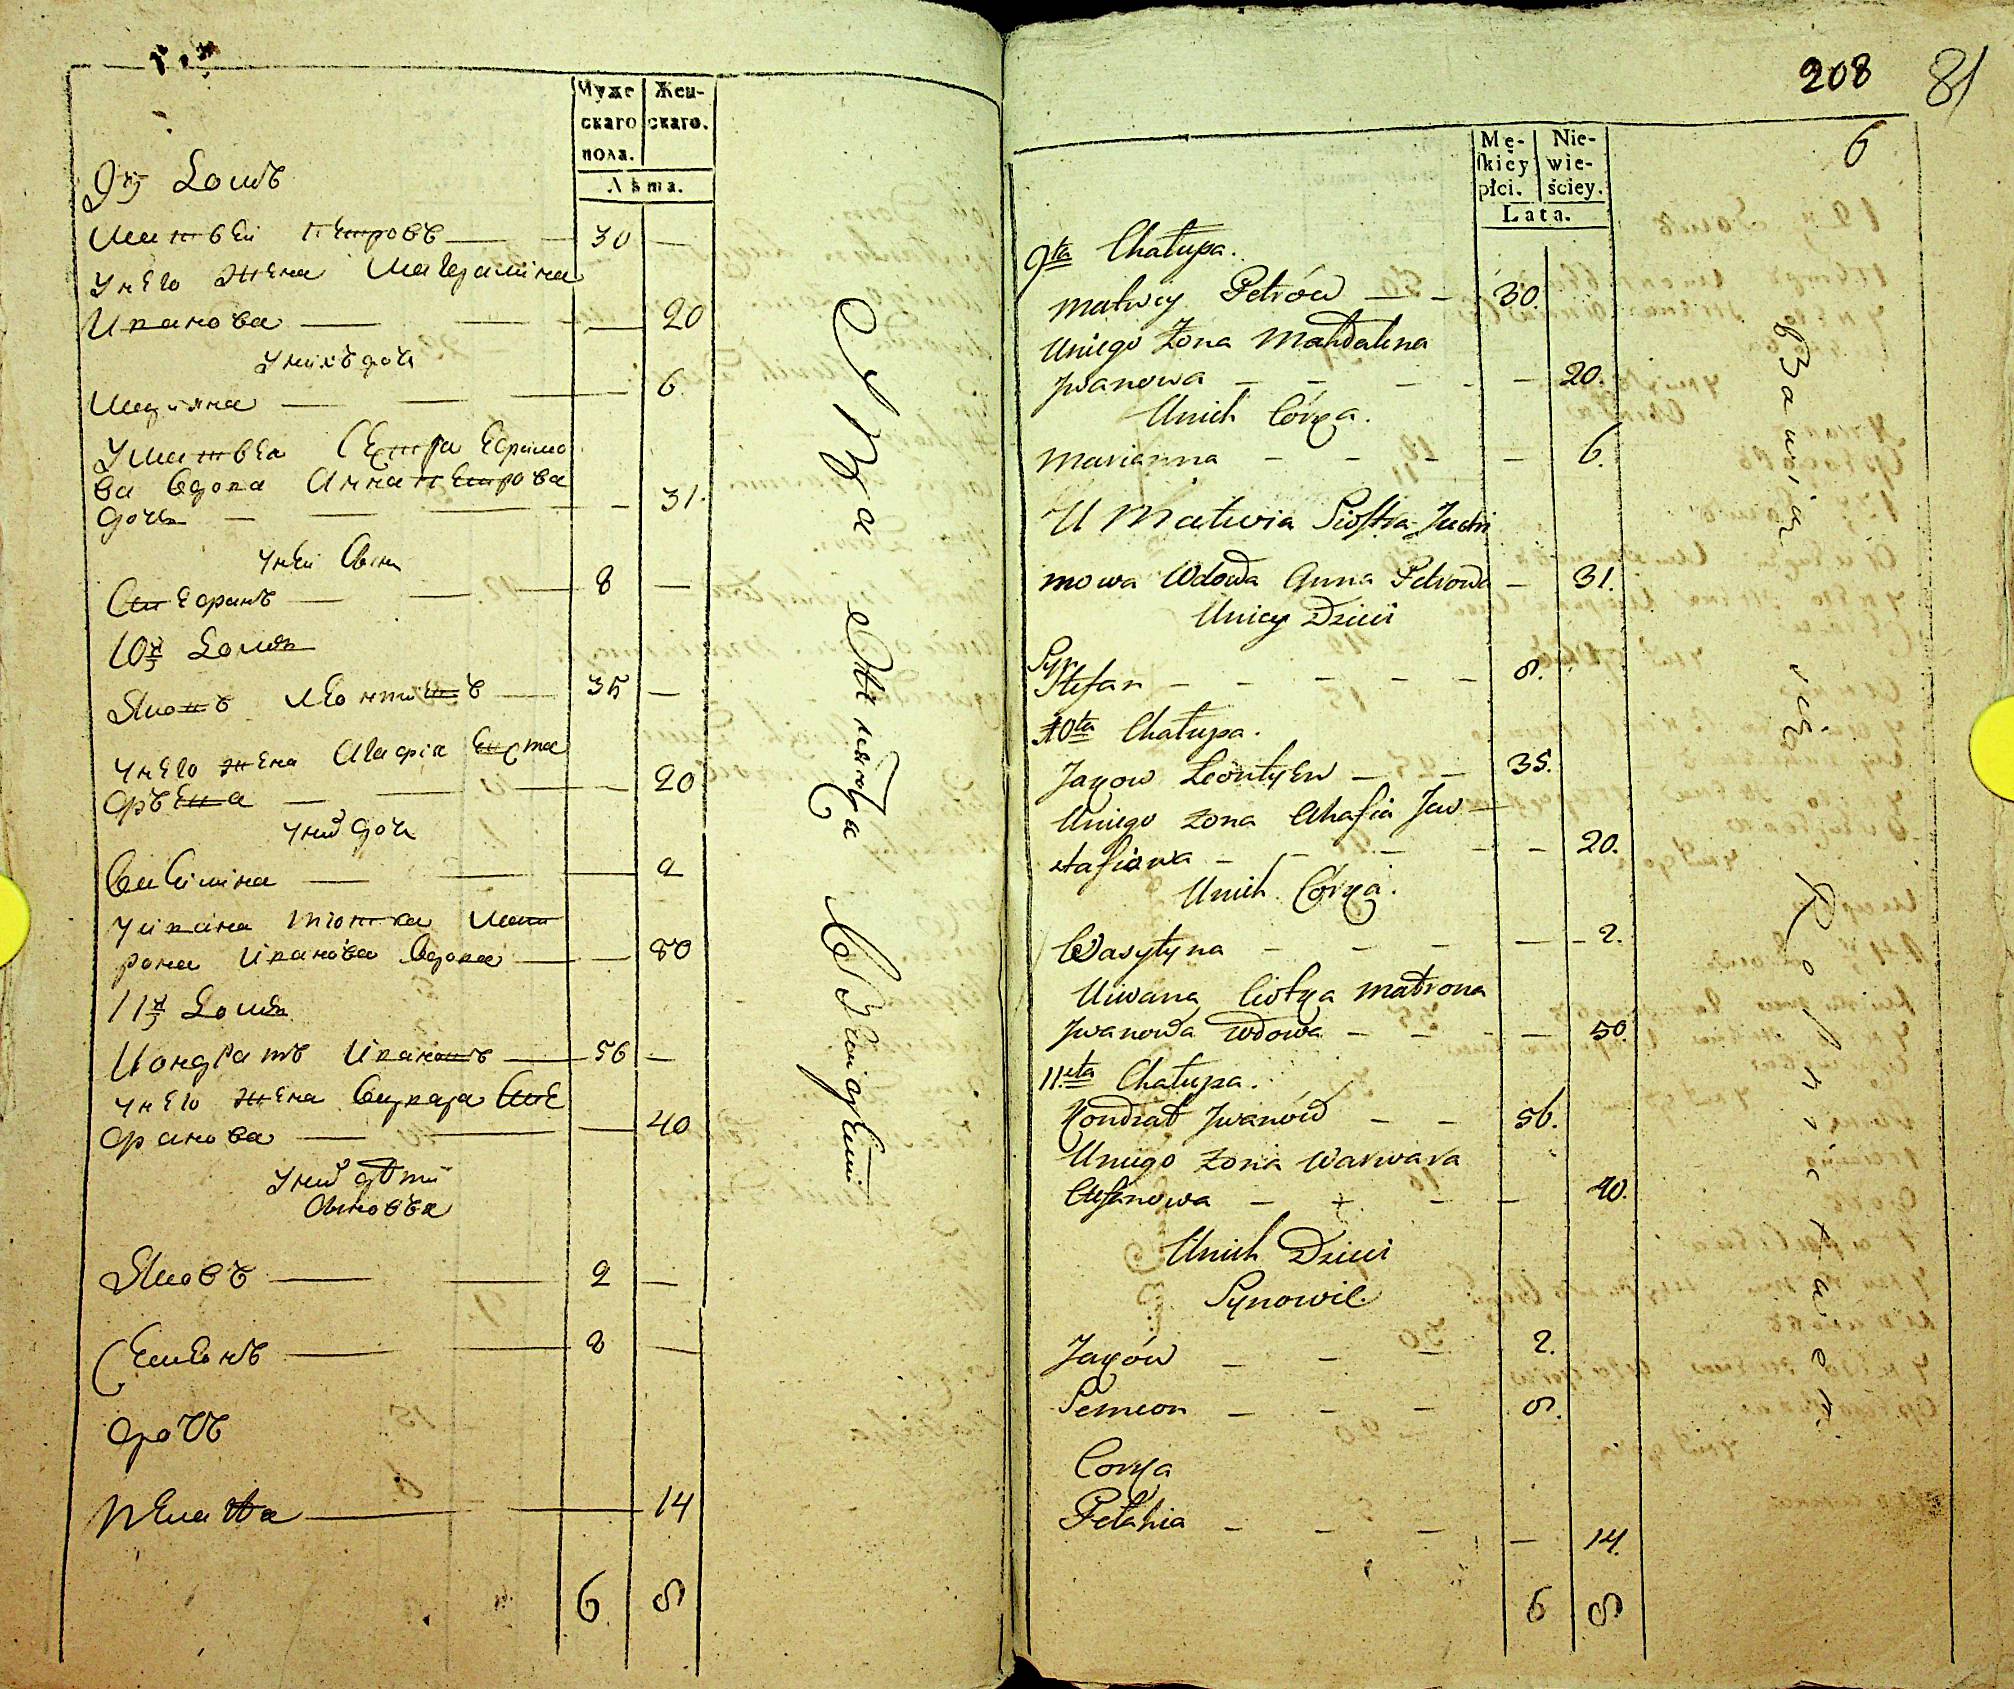 Муже
скаго
пола.
Жен-
скаго.
Лѣта.
9й Домъ
Матвей Петровъ — — 30 —
Унего жена Магдалина
Иванова — — — 20
Унихъ дочь
Марияна — — — 6
Уматвея Сестра Ефимо
ва вдова Анна Петрова
дочь — — — — 31.
Уней Сынъ
Стефанъ — — 8 —
10й Домъ
Яковъ Леонтиевъ — 35 —
Унего жена Агафія Евста
фьева — — — 20
Унихъ дочь
Василина — — — 2
Уивана тютка Мат
рона Иванова вдова — — 50
11й Домъ
Кондратъ Ивановъ — 56 —
Унего жена Варвара Сте
фанова — — — 40
Унихъ дѣти
Сыновья
Яковъ — — 2 —
Семионъ — — 8 —
дочь
Пелагея — — — 14
6 8
208 81
6
Mę-
skiey
płci.
Nie-
wie-
ściey.
Lata.
9ta Chałupa.
Matwiey Petrów — — 30.
Uniego Żona Mahdalena
Jwanowa — — — — — 20.
Unich Córka.
Marianna — — — — 6.
U Matwia Siostra Juchi
mowa Wdowa Anna Petrowa — 31.
Uniey Dzieci
Syn
Stefan — — — — — 8.
10ta Chałupa.
Jakow Leontyew — — 35.
Uniego żona Ahafia Jew —
stafiowa — — — — — 20.
Unich Córka.
Wasylyna — — — — — 2.
Uiwana Ciotka Matrona
Jwanowa wdowa — — — — 50.
11.ta Chałupa.
Kondrat Jwanów — — 56.
Uniego żona Warwara
Stefanowa — — — — 40.
Unich Dzieci
Synowie
Jaków — — — 2.
Semion — — — 8.
Corka
Pełahia — — — — 14.
6 8